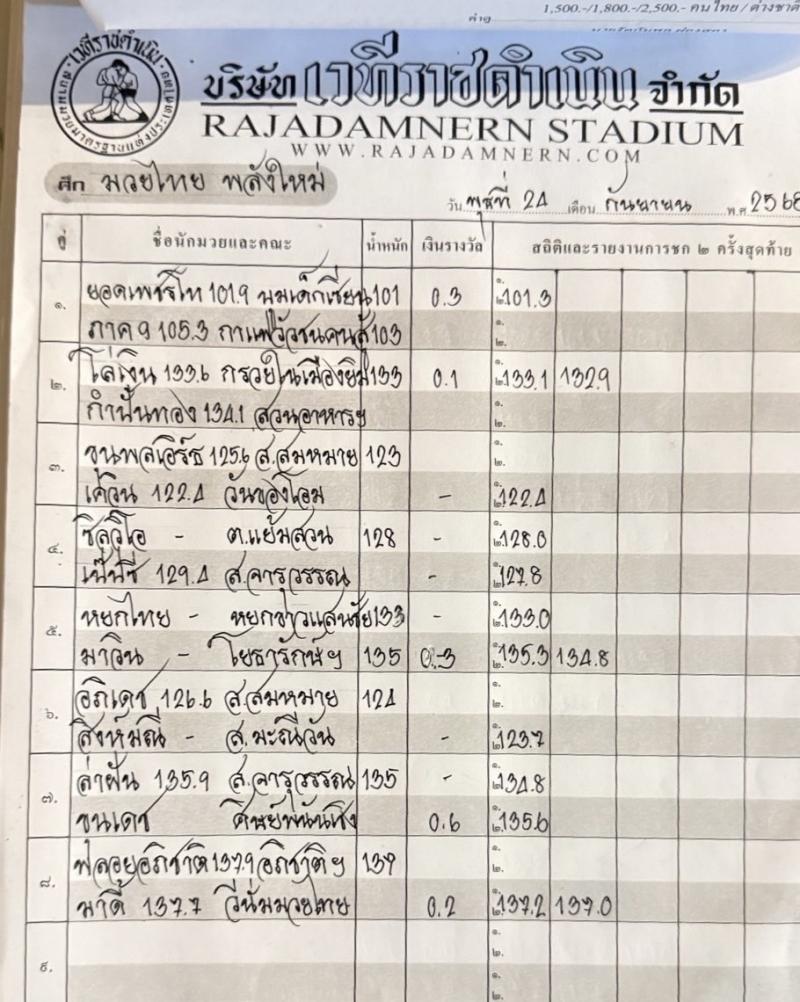 1,500.-/1,800.-/2,500.- คนไทย / ต่างชาติ
ค่าดู
เวทีราชดำเนิน
บริษัท เวทีราชดำเนิน จำกัด
RAJADAMNERN STADIUM
WWW.RAJADAMNERN.COM
ศึก มวยไทย พลังใหม่
วัน พุธที่ 24 เดือน กันยายน พ.ศ. 2568
คู่ ชื่อนักมวยและคณะ น้ำหนัก เงินรางวัล สถิติและรายงานการชก ๒ ครั้งสุดท้าย
๑. ยอดเพชรโท 101.9 นมเด็กเซียน 101 0.3 ๑. ๒. 101.3
ภาค 9 105.3 กาแฟวัวชนคนสู้ 103 ๑. ๒.
๒. โล่เงิน 133.6 กรวยในเมืองยิม 133 0.1 ๑. ๒. 133.1 132.9
กำปั้นทอง 134.1 สวนอาหารฯ ๑. ๒.
๓. ขุนพลเอิร์ธ 125.6 ส.สมหมาย 123 ๑. ๒.
เควิน 122.4 วันของโอม - ๑. ๒. 122.4
๔. ซิลวิโอ - ต.แย้มสวน 128 - ๑. ๒. 128.0
เป๊ปซี่ 129.4 ส.จารุวรรณ - ๑. ๒. 127.8
๕. หยกไทย - หยกขาวแสนชัย 133 - ๑. ๒. 133.0
มาวิน - โยธารักษ์ฯ 135 0.3 ๑. ๒. 135.3 134.8
๖. อภิเดช 126.6 ส.สมหมาย 124 ๑. ๒.
สิงห์มณี - ส.มะณีวัน - ๑. ๒. 123.7
๗. ล่าฝัน 135.9 ส.จารุวรรณ 135 - ๑. ๒. 134.8
ชนเดช ศิษย์พนันเชิง 0.6 ๑. ๒. 135.6
๘. พลอยอภิชาติ 137.9 อภิชาติฯ 137 ๑. ๒.
มาดี้ 137.7 วีนั่มมวยไทย 0.2 ๑. ๒. 137.2 137.0
๙. ๑. ๒.
๑. ๒.